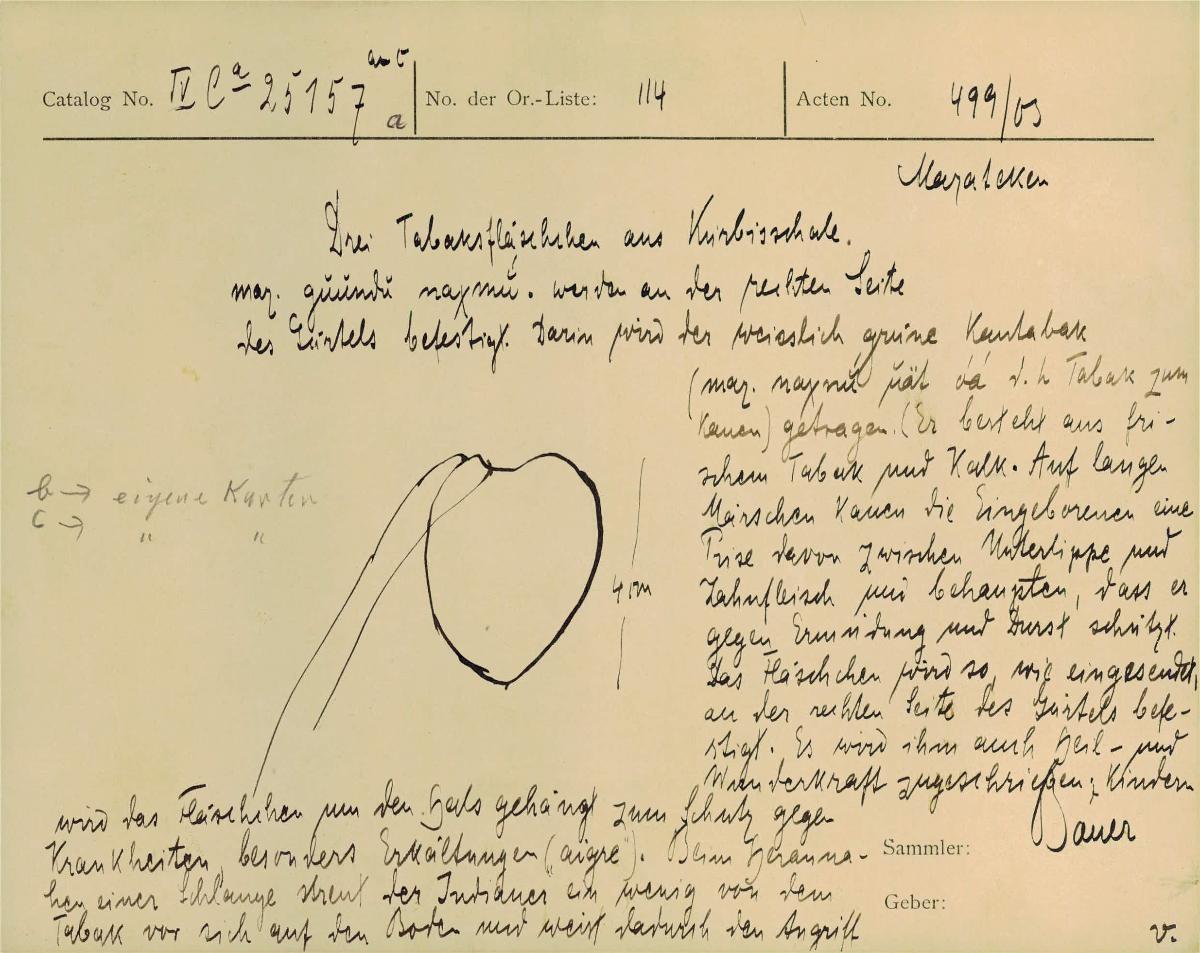 Catalog No. IV Ca 25157 a-c a No. der Or.-Liste: 114 Acten No. 499/03
Mazateken
Drei Tabaksfläschchen aus Kürbisschale.
maz. werden an der rechten Seite
des Gürtels befestigt. Darin wird der weisslich grüne Kautabak
(maz. d. h. Tabak zum
Kauen) getragen. (Er besteht aus fri-
schem Tabak und Kalk. Auf langen
Märschen kauen die Eingeborenen eine
Prise davon zwischen Unterlippe und
Zahnfleisch und behaupten, dass er
gegen Ermüdung und Durst schützt.
Das Fläschchen wird so, wie eingesendet,
an der rechten Seite des Gürtels befe-
stigt. Es wird ihm auch Heil- und
Wunderkraft zugeschrieben; Kindern
wird das Fläschchen um den Hals gehängt zum Schutz gegen
Krankheiten, besonders Erkältungen („aigre“). Beim Heranna-
hen einer Schlange streut der Indianer ein wenig von dem
Tabak vor sich auf den Boden und weist dadurch den Angriff
b → eigene Karten
c → " "
4 cm
Sammler: Bauer
Geber:
v.